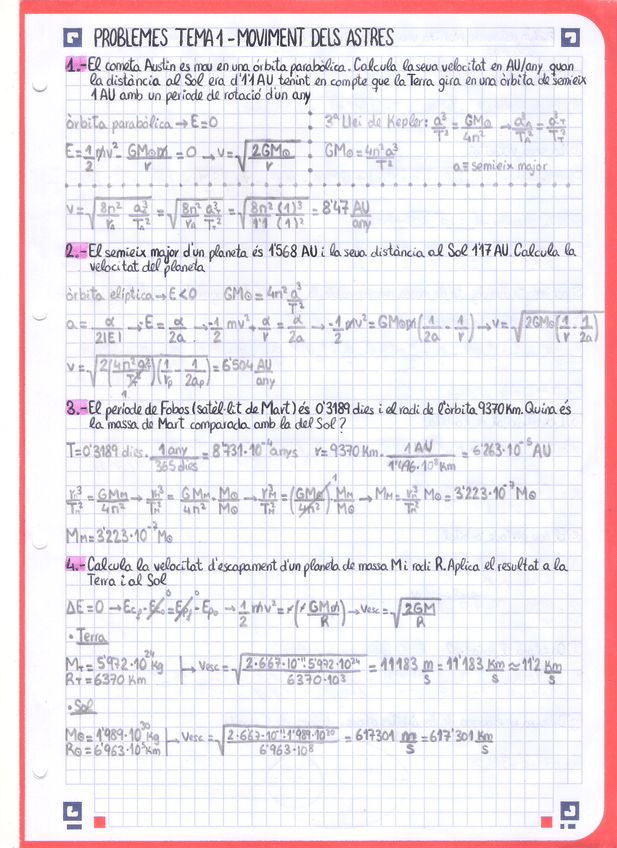 PROBLEMES TEMA 1 - MOVIMENT DELS ASTRES
1.- El cometa Austin es mou en una òrbita parabòlica. Calcula la seua velocitat en AU/any quan
la distància al Sol era d'1'1 AU tenint en compte que la Terra gira en una òrbita de semieix
1 AU amb un període de rotació d'un any
òrbita parabòlica → E=0
3ª Llei de Kepler: a³/T² = GM⊙/4π² → a³_A/T²_A = a³_T/T²_T
E = 1/2 mv² - GM⊙m/r = 0 → v = √(2GM⊙/r)
GM⊙ = 4π²a³/T²
a ≡ semieix major
v = √(8π²/r_A a³_A/T²_A) = √(8π²/r_A a³_T/T²_T) = √(8π²/1'1 (1)³/(1)²) = 8'47 AU/any
2.- El semieix major d'un planeta és 1'568 AU i la seua distància al Sol 1'17 AU. Calcula la
velocitat del planeta
òrbita elíptica → E<0 GM⊙ = 4π² a³/T²
a = α/2|E| → E = α/2a → -1/2 mv² + α/r = α/2a → -1/2 mv² = GM⊙m(1/2a - 1/r) → v = √(2GM⊙(1/r - 1/2a))
v = √(2(4π²a³/T²)(1/r_p - 1/2a_p)) = 6'504 AU/any
1
3.- El període de Fobos (satèl·lit de Mart) és 0'3189 dies i el radi de l'òrbita 9370 Km. Quina és
la massa de Mart comparada amb la del Sol?
T = 0'3189 dies · 1 any/365 dies = 8'731·10⁻⁴ anys r = 9370 Km · 1 AU/1'496·10⁸ Km = 6'263·10⁻⁵ AU
r³_M/T²_M = GM_M/4π² → r³_M/T²_M = GM_M/4π² · M⊙/M⊙ → r³_M/T²_M = (GM⊙/4π²)¹ · M_M/M⊙ → M_M = r³_M/T²_M M⊙ = 3'223·10⁻⁷ M⊙
M_M = 3'223·10⁻⁷ M⊙
4.- Calcula la velocitat d'escapament d'un planeta de massa M i radi R. Aplica el resultat a la
Terra i al Sol
ΔE = 0 → Ec_f - Ec_0 = Ep_f - Ep_0 → 1/2 mv² = -(-GMm/R) → v_esc = √(2GM/R)
• Terra
M_T = 5'972·10²⁴ Kg
R_T = 6370 Km
→ v_esc = √(2·6'67·10⁻¹¹·5'972·10²⁴/6370·10³) = 11183 m/s = 11'183 Km/s ≈ 11'2 Km/s
• Sol
M⊙ = 1'989·10³⁰ Kg
R⊙ = 6'963·10⁵ Km
→ v_esc = √(2·6'67·10⁻¹¹·1'989·10³⁰/6'963·10⁸) = 617301 m/s = 617'301 Km/s